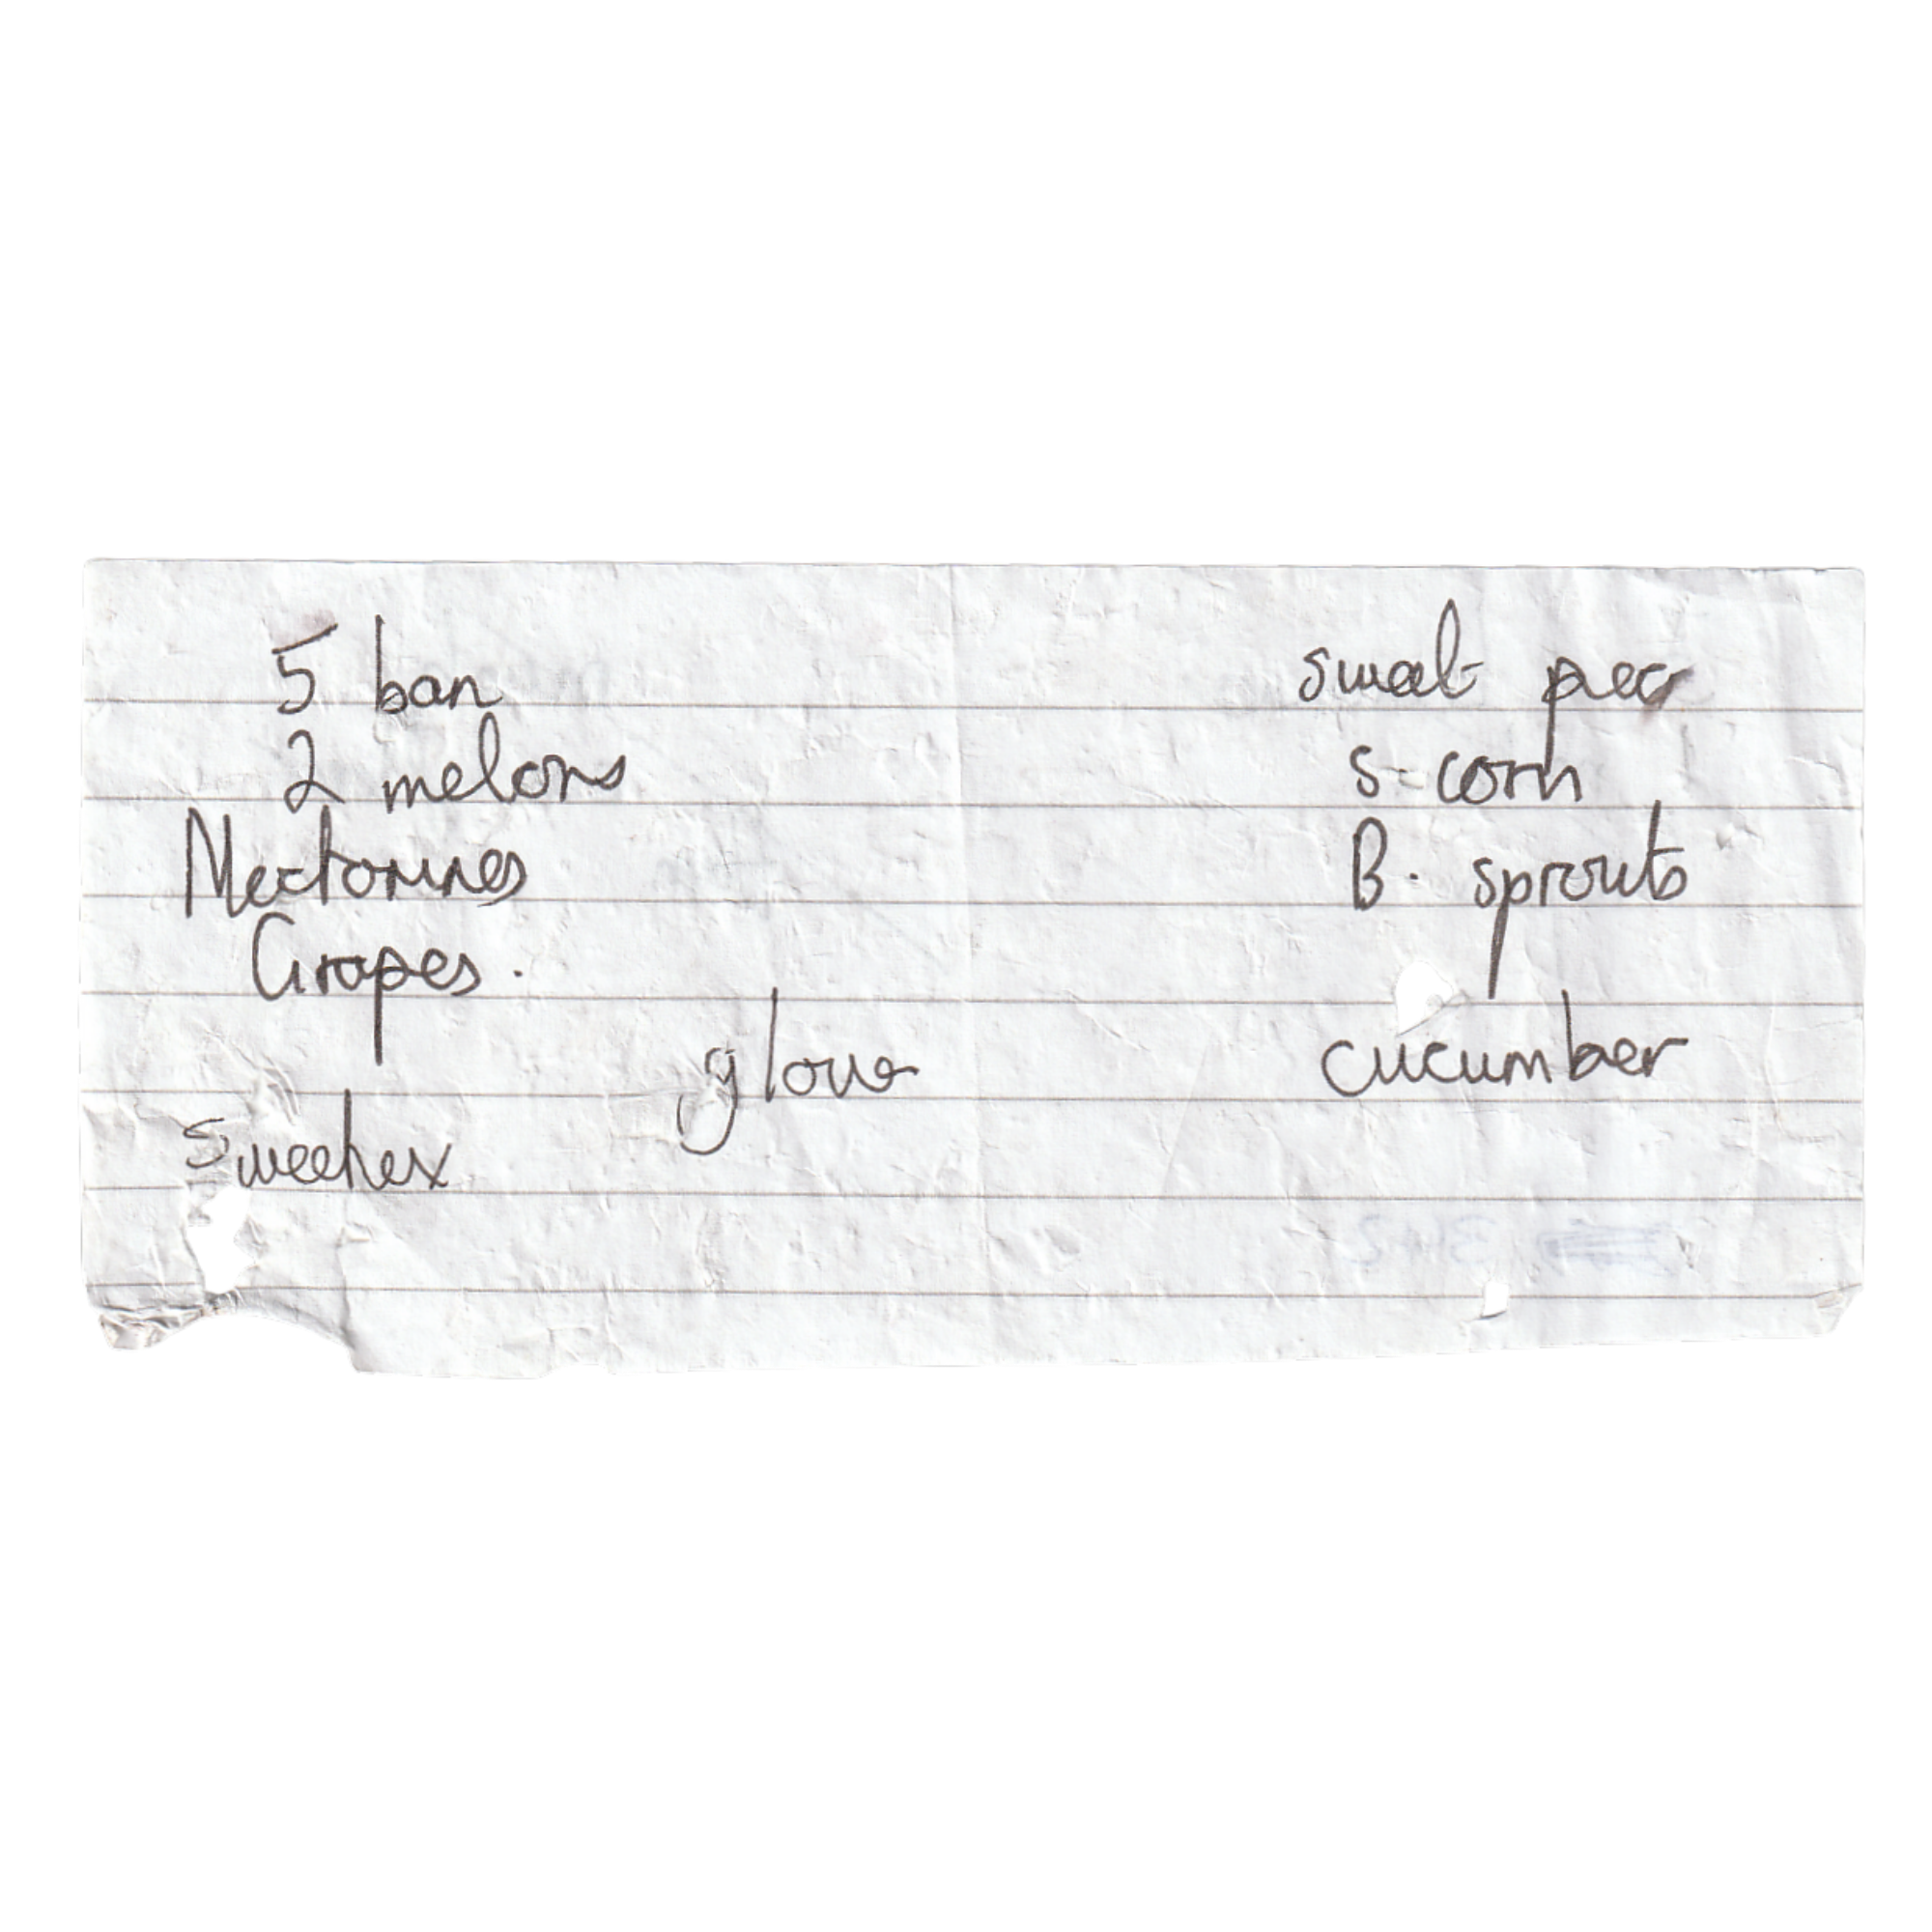 5 ban
2 melons
Nectarines
Grapes.
Sweetex
glove
sweet pea
s-corn
B. sprouts
cucumber